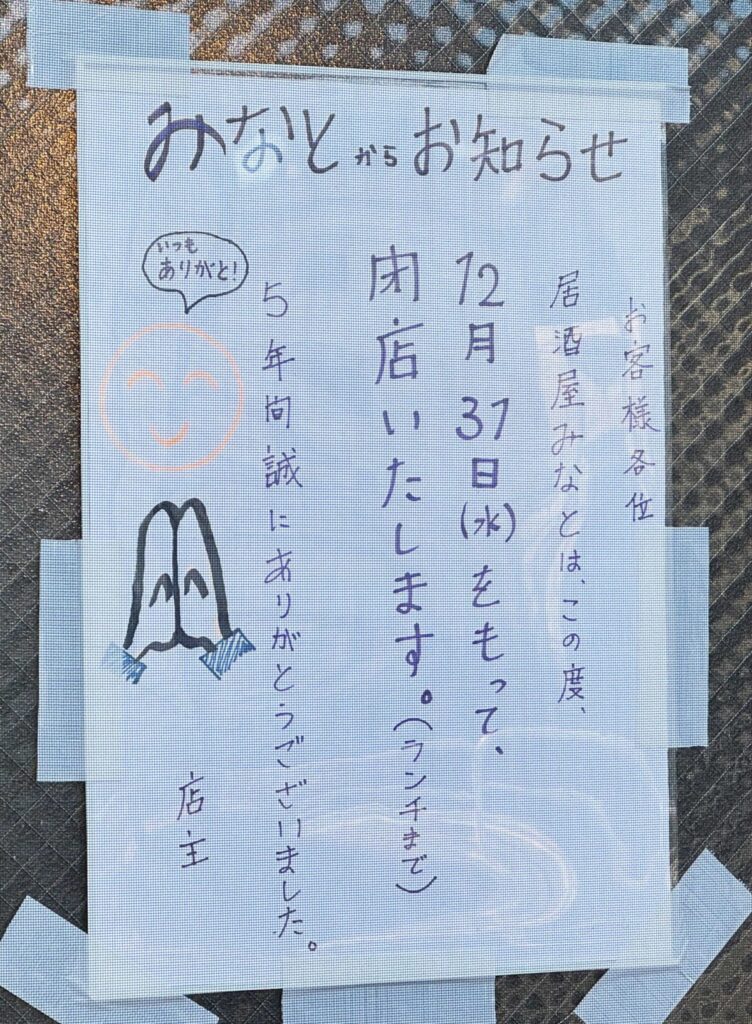 みなとからお知らせ
お客様各位
居酒屋みなとは、この度、
12月31日(水)をもって、
閉店いたします。(ランチまで)
5年間誠にありがとうございました。
いつも
ありがと!
店主